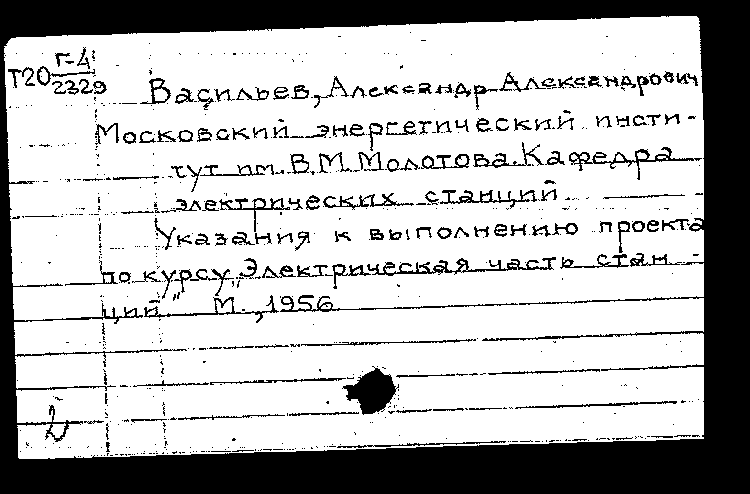 Т20 Г-4/2329
Васильев, Александр Александрович
Московский энергетический инсти-
тут им. В.М. Молотова. Кафедра
электрических станций
Указания к выполнению проекта
по курсу „Электрическая часть стан-
ций“ М., 1956
2